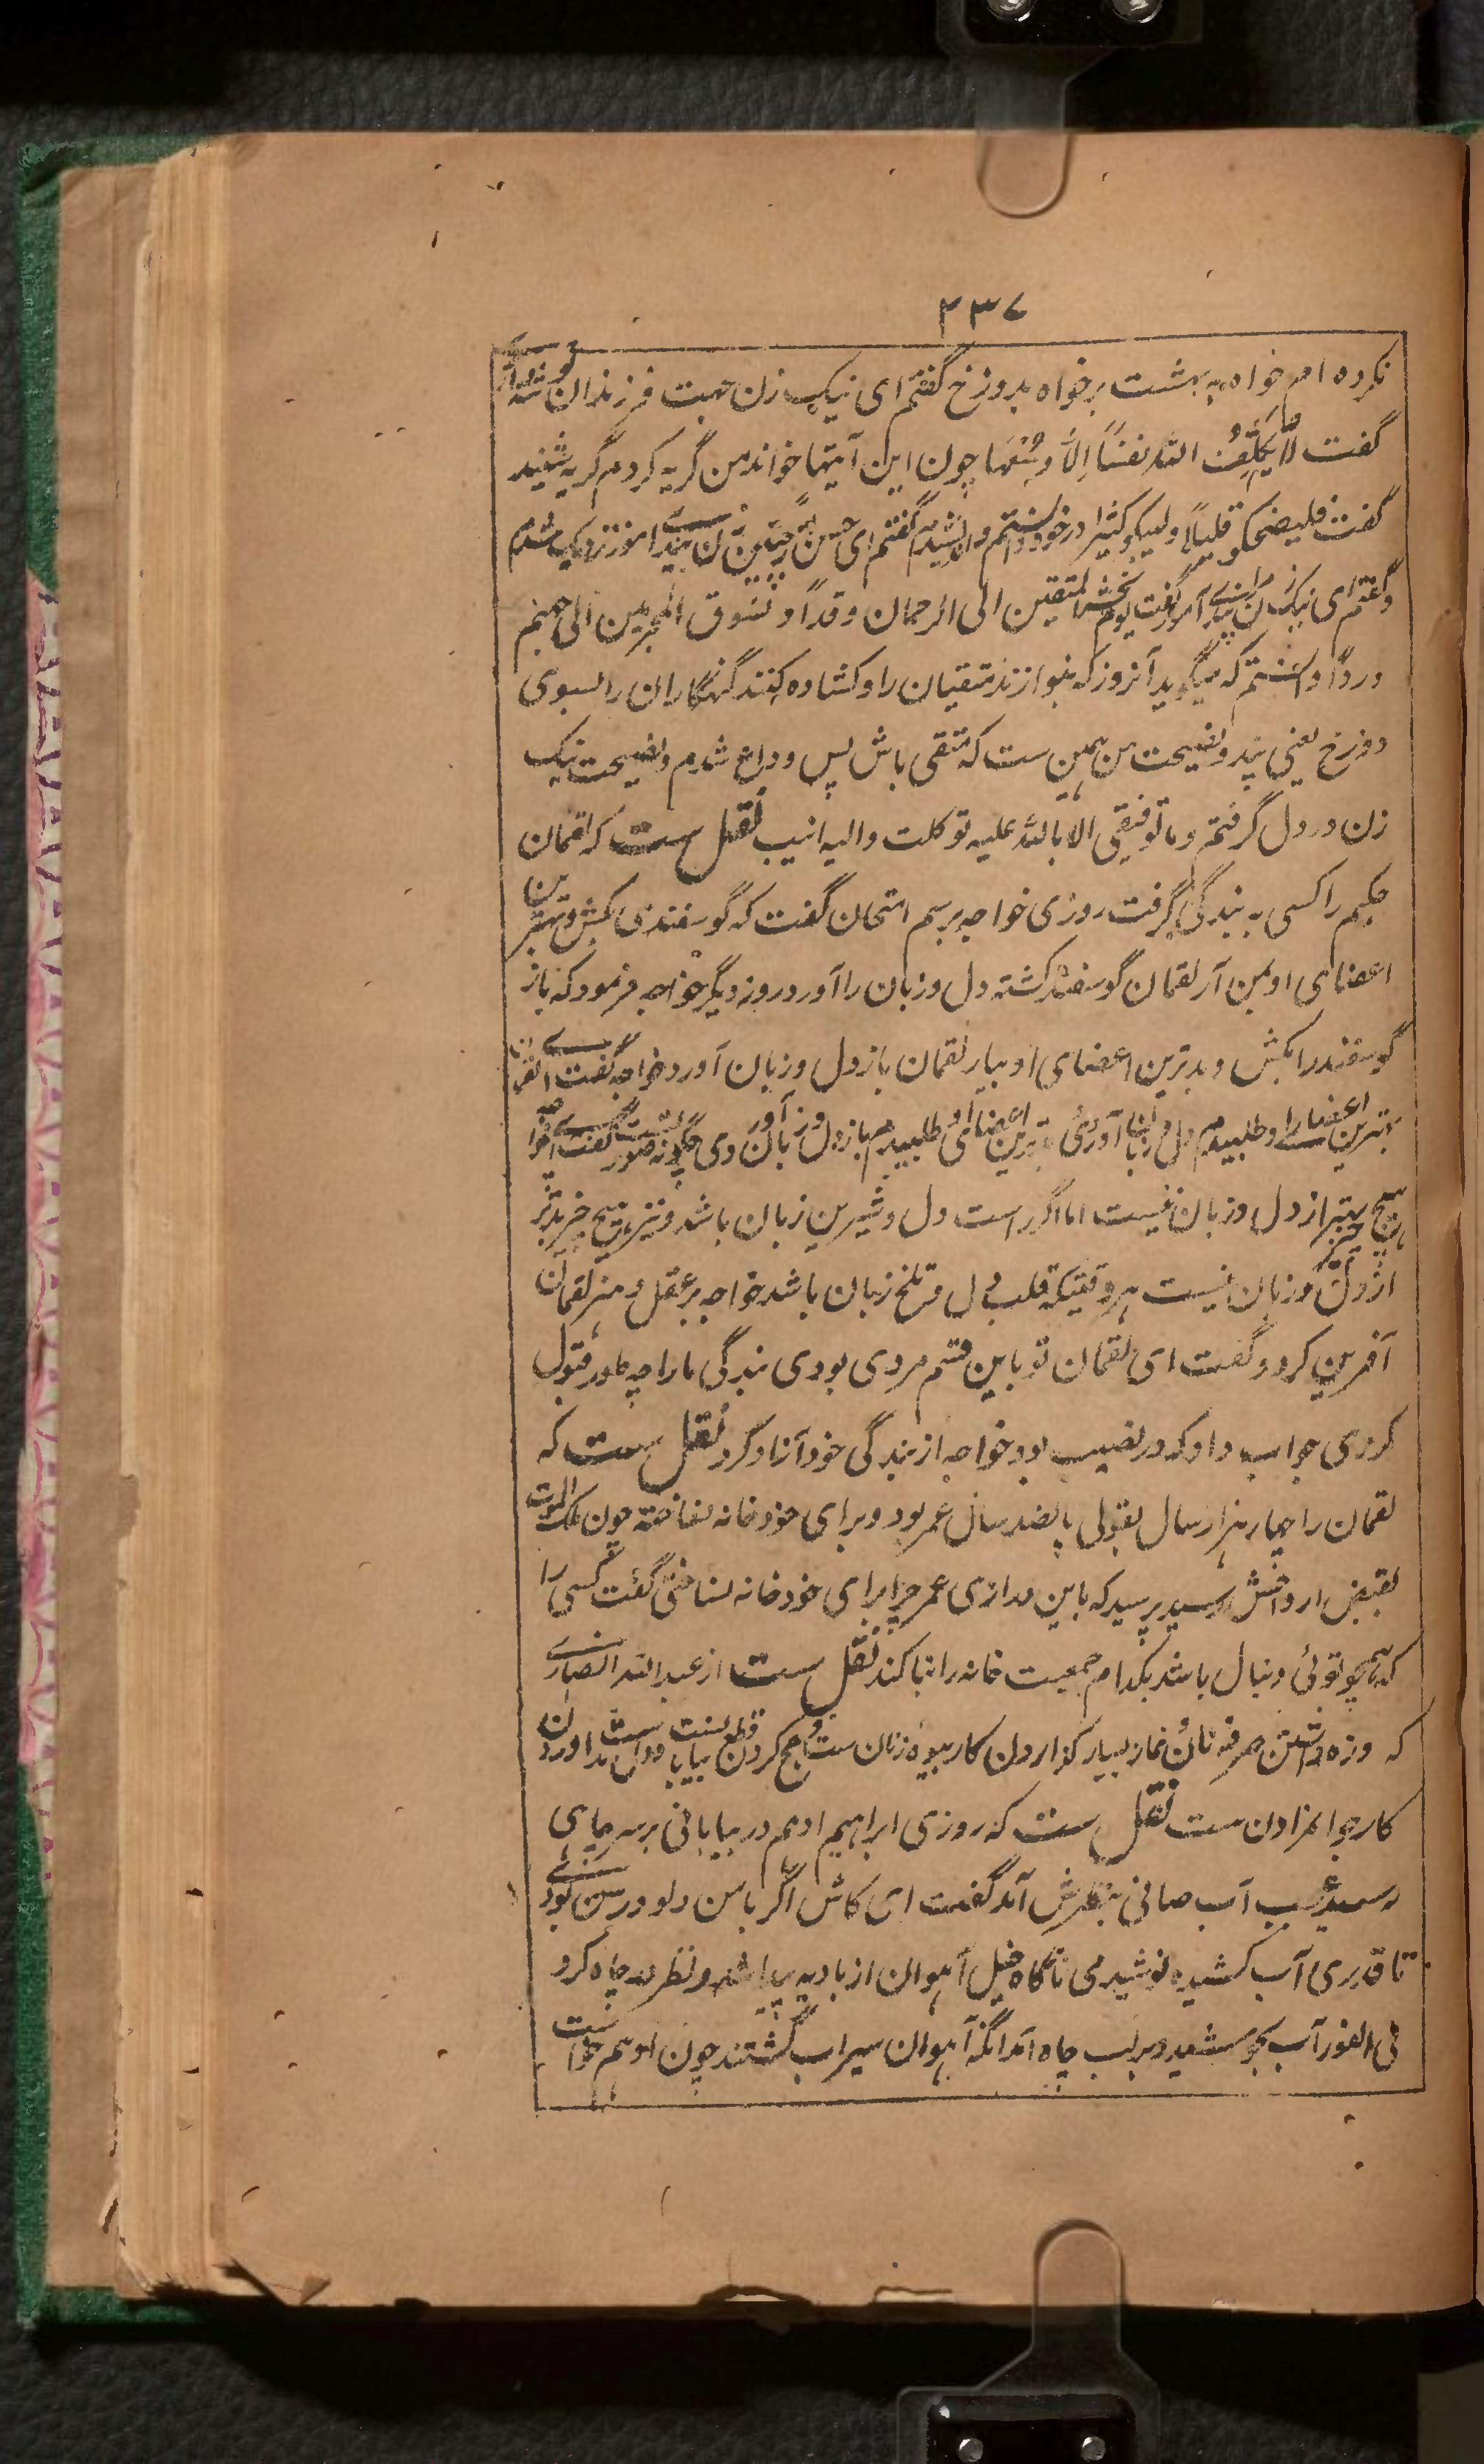 ۲۳۷
نکرده ام خواه به بهشت بر خواه بدوزخ گفتم ای نیک زن جهت فرزندان
گفت لا یکلف الله نفساً الا وسعها چون این آیتها خواند من گریه کردم گریه شنید
گفت فلیضحکو قلیلاً ولیبکو کثیرا در خود و اندیشیدم گفتم ای زن پند آموز نزدیک شدم
و گفتم ای نیک زن مرا پندی آموز گفت یوم نحشر المتقین الی الرحمان وفداً و نسوق المجرمین الی جهنم
ورداً دانستم که میگوید آنروز که بنوازند متقیان را و کشاده کنند گنهگاران را بسوی
دوزخ یعنی پند و نصیحت من همین ست که متقی باش پس وداع شدم و نصیحت نیک
زن در دل گرفتم و ما توفیقی الا بالله علیه توکلت والیه انیب نقل ست که لقمان
حکیم را کسی به بندگی گرفت روزی خواجه برسم امتحان گفت که گوسفندی بکش و بهترین
اعضای او بمن آر لقمان گوسفند کشته دل و زبان را آورد روز دیگر خواجه فرمود که باز
گوسفند را بکش و بدترین اعضای او بیار لقمان باز دل و زبان آورد خواجه گفت ای لقمان
بهترین اعضا را و طلبیدم دل و زبان آوردی بدترین اعضای او طلبیدم باز دل و زبان آوردی چگونه صورتست گفت ای خواجه
هیچ چیز بهتر از دل و زبان نیست اما اگر راست دل و شیرین زبان باشد و نیز هیچ چیز بدتر
از دل و زبان نیست هر وقتیکه قلب دل و تلخ زبان باشد خواجه بر عقل و هنر لقمان
آفرین کرد و گفت ای لقمان تو باین قسم مردی بودی بندگی ما را چه طور قبول
کردی جواب داد که در نصیب بود خواجه از بندگی خود آزاد کرد نقل ست که
لقمان را چهار هزار سال بقولی پانصد سال عمر بود و برای خود خانه نساخته چون ملک الموت
بقبض ارواحش رسید پرسید که باین درازی عمر چرا برای خود خانه نساختی گفت کسی را
که همچو توئی دنبال باشد بکدام جمعیت خانه را بنا کند نقل ست از عبدالله انصاری
که روزه داشتن صرفه نان نماز بسیار گزاردن کار بیوه زنان ست و حج کردن قطع بیابان ست دل بدست آوردن
کار جوانمردان ست نقل ست که روزی ابراهیم ادهم در بیابانی بر سر چاهی
رسید آب صافی بنظرش آمد گفت ای کاش اگر با من دلو و رسن بودی
تا قدری آب کشیده نوشیدمی ناگاه خیل آهوان از بادیه پیدا شد و نظر به چاه کرد
فی الفور آب بجوشید و بر لب چاه آمد آنگه آهوان سیراب گشتند چون ادهم خواست